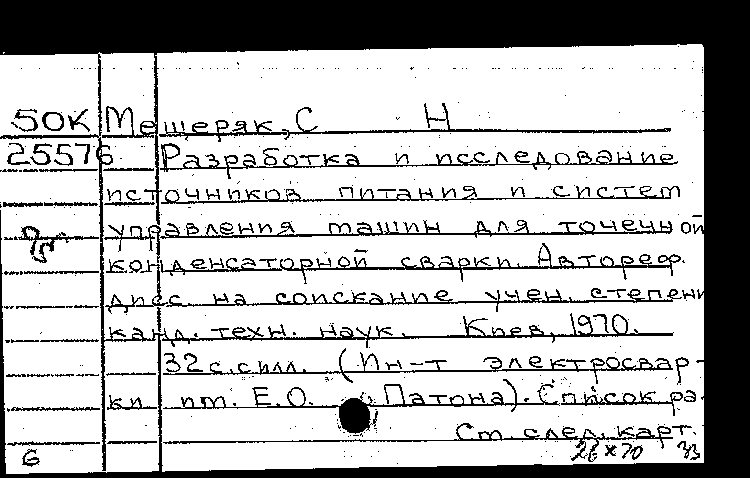 50К Мещеряк, С Н
25576 Разработка и исследование
источников питания и систем
управления машин для точечной
конденсаторной сварки. Автореф.
дисс. на соискание учен. степени
канд. техн. наук. Киев, 1970.
32 с. с илл. (Ин-т электросвар-
ки им. Е.О. Патона). Список ра-
См. след. карт.
6